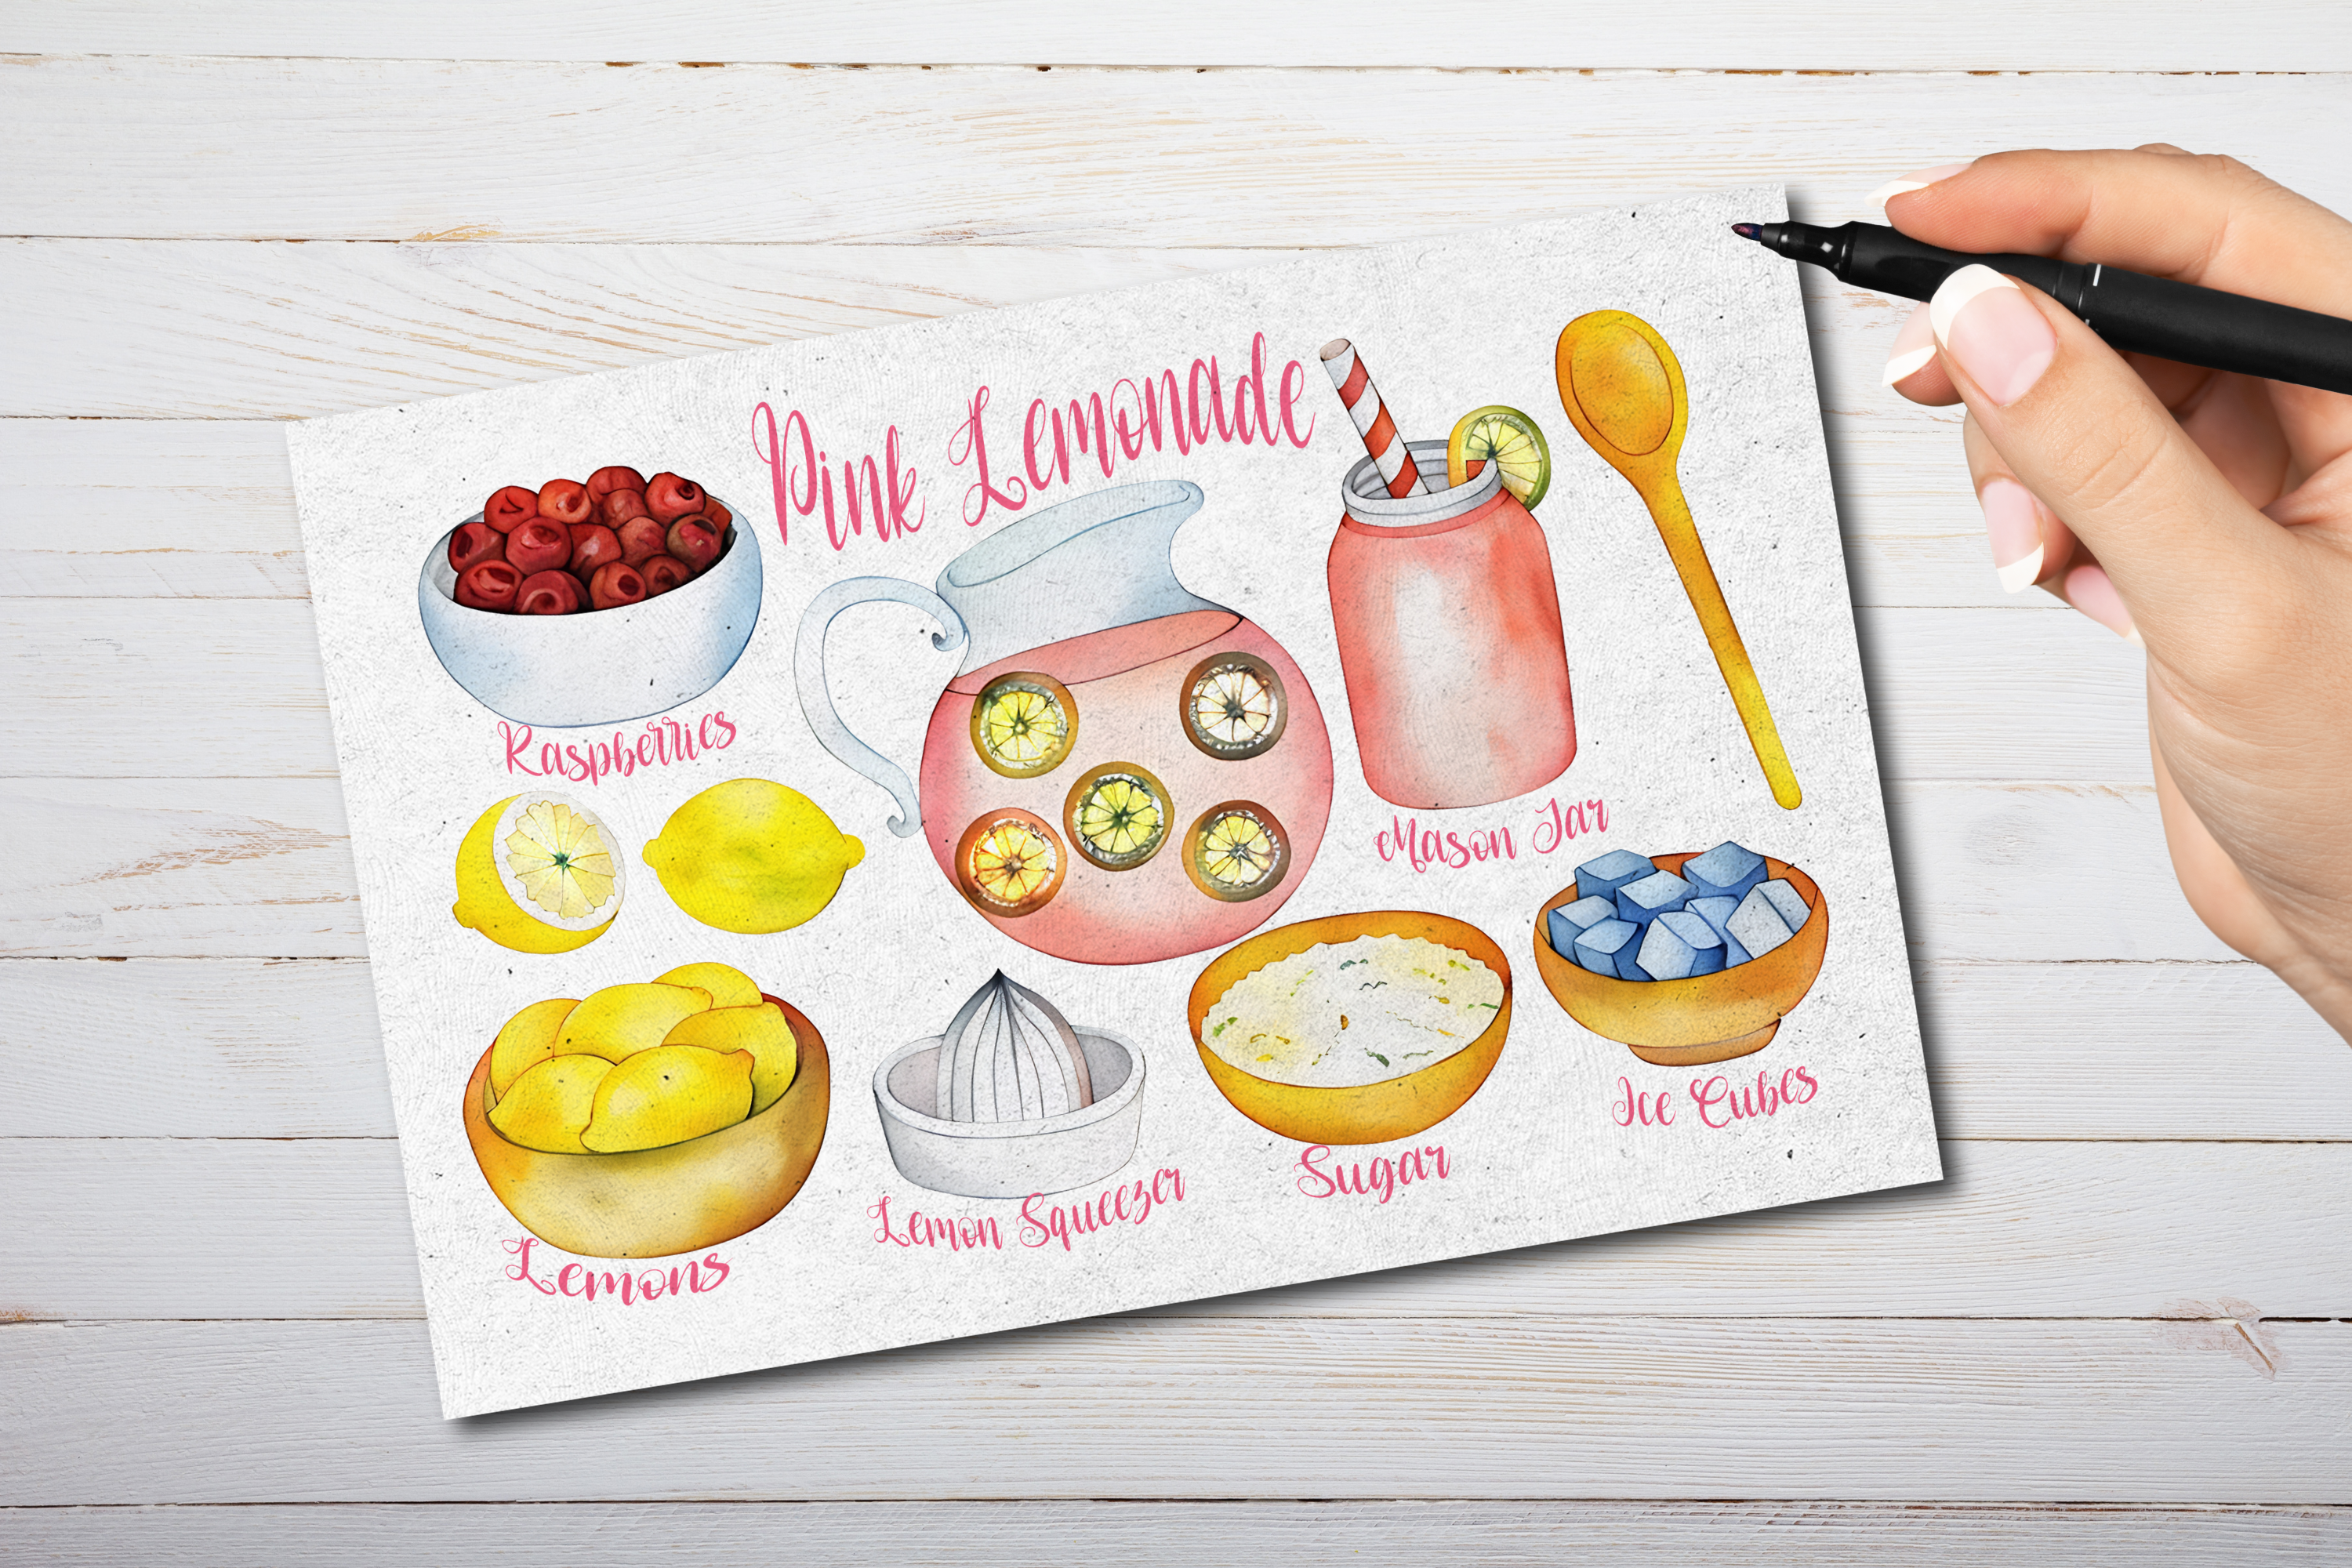 Pink Lemonade
Raspberries
Mason Jar
Ice Cubes
Sugar
Lemon Squeezer
Lemons